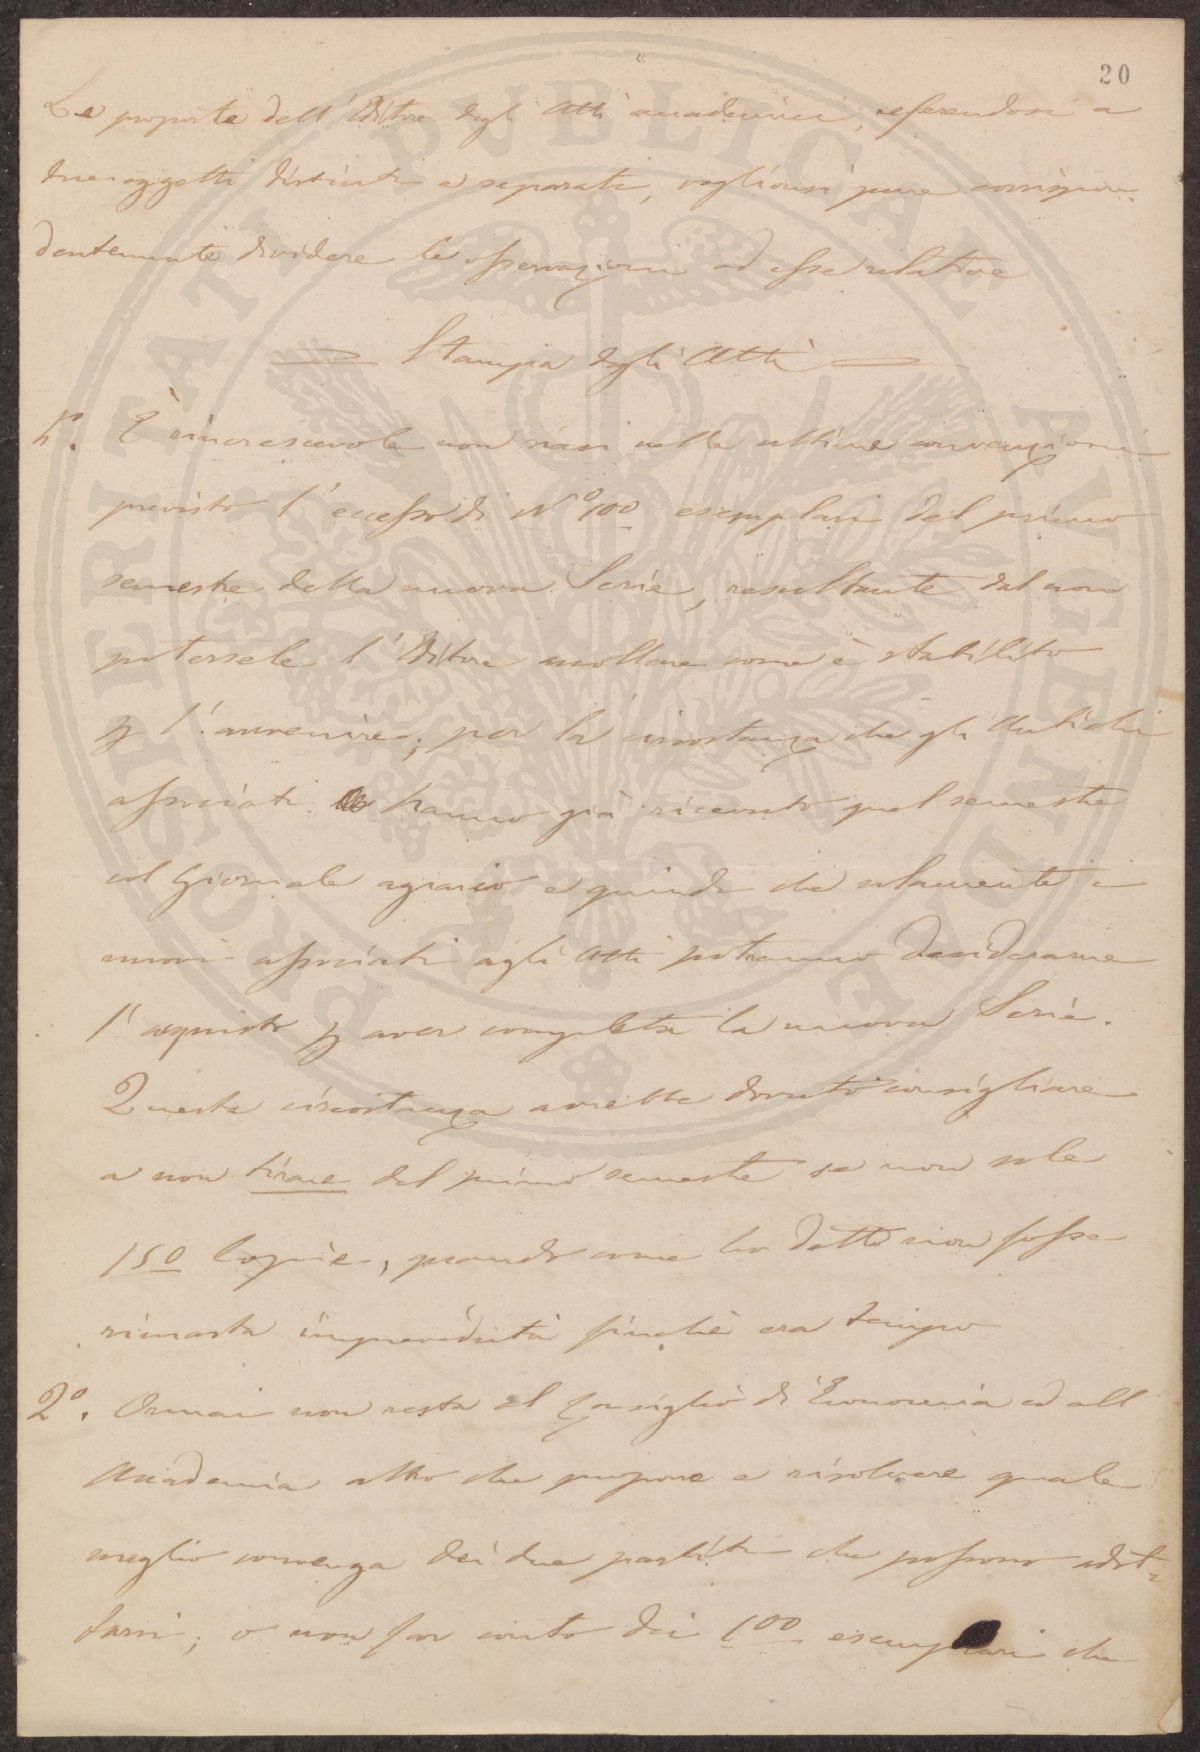 20
Le proposte dell'Editore degli Atti accademici, referendosi a
due oggetti distinti e separati, voglionsi pure corrispon-
dentemente dividere le osservazioni ad esse relative
Stampa degli Atti
1°. È rincrescevole non siasi nelle ultime convenzioni
previsto l'eccesso di N° 100 esemplari del primo
semestre della nuova Serie, resultante dal non
potersele l'Editore accollare come è stabilito
p l'avvenire; per la circostanza che gli Antichi
associati hanno già ricevuto quel semestre
col Giornale agrario e quindi che solamente i
nuovi associati agli Atti potranno desiderarne
l'acquisto p aver completa la nuova Serie.
Questa circostanza avrebbe dovuto consigliare
a non tirare del primo semestre se non sole
150 Copie, quando come ho detto non fosse
rimasta impreveduta finchè era tempo
2°. Ormai non resta al Consiglio di Economia ed all
Accademia altro che proporre e risolvere quale
meglio convenga dei due partiti che possono adot-
tarsi; o non far conto dei 100 esemplari che
PROSPERITATI PVBLICAE AVGENDAE